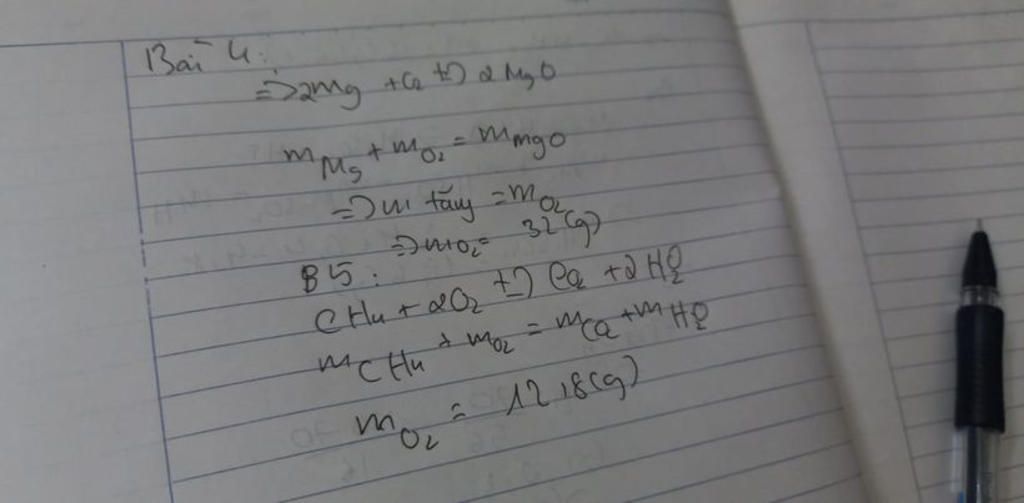 Bài 4:
=> 2Mg + O2 t-> 2MgO
mMg + mO2 = mMgO
=> m tăng = mO2
=> mO2 = 32 (g)
B5:
CH4 + 2O2 t-> CO2 + 2H2O
mCH4 + mO2 = mCO2 + mH2O
mO2 = 12,8 (g)